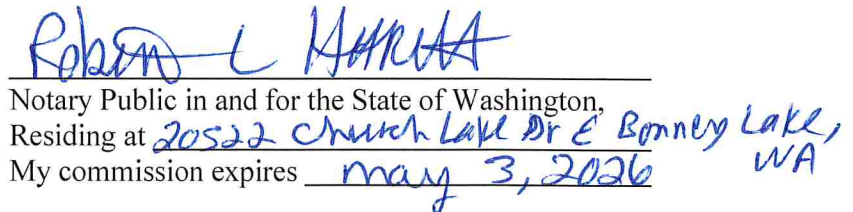 Robin L
Notary Public in and for the State of Washington,
Residing at 20522 Church Lake Dr E Bonney Lake,
WA
My commission expires may 3, 2026